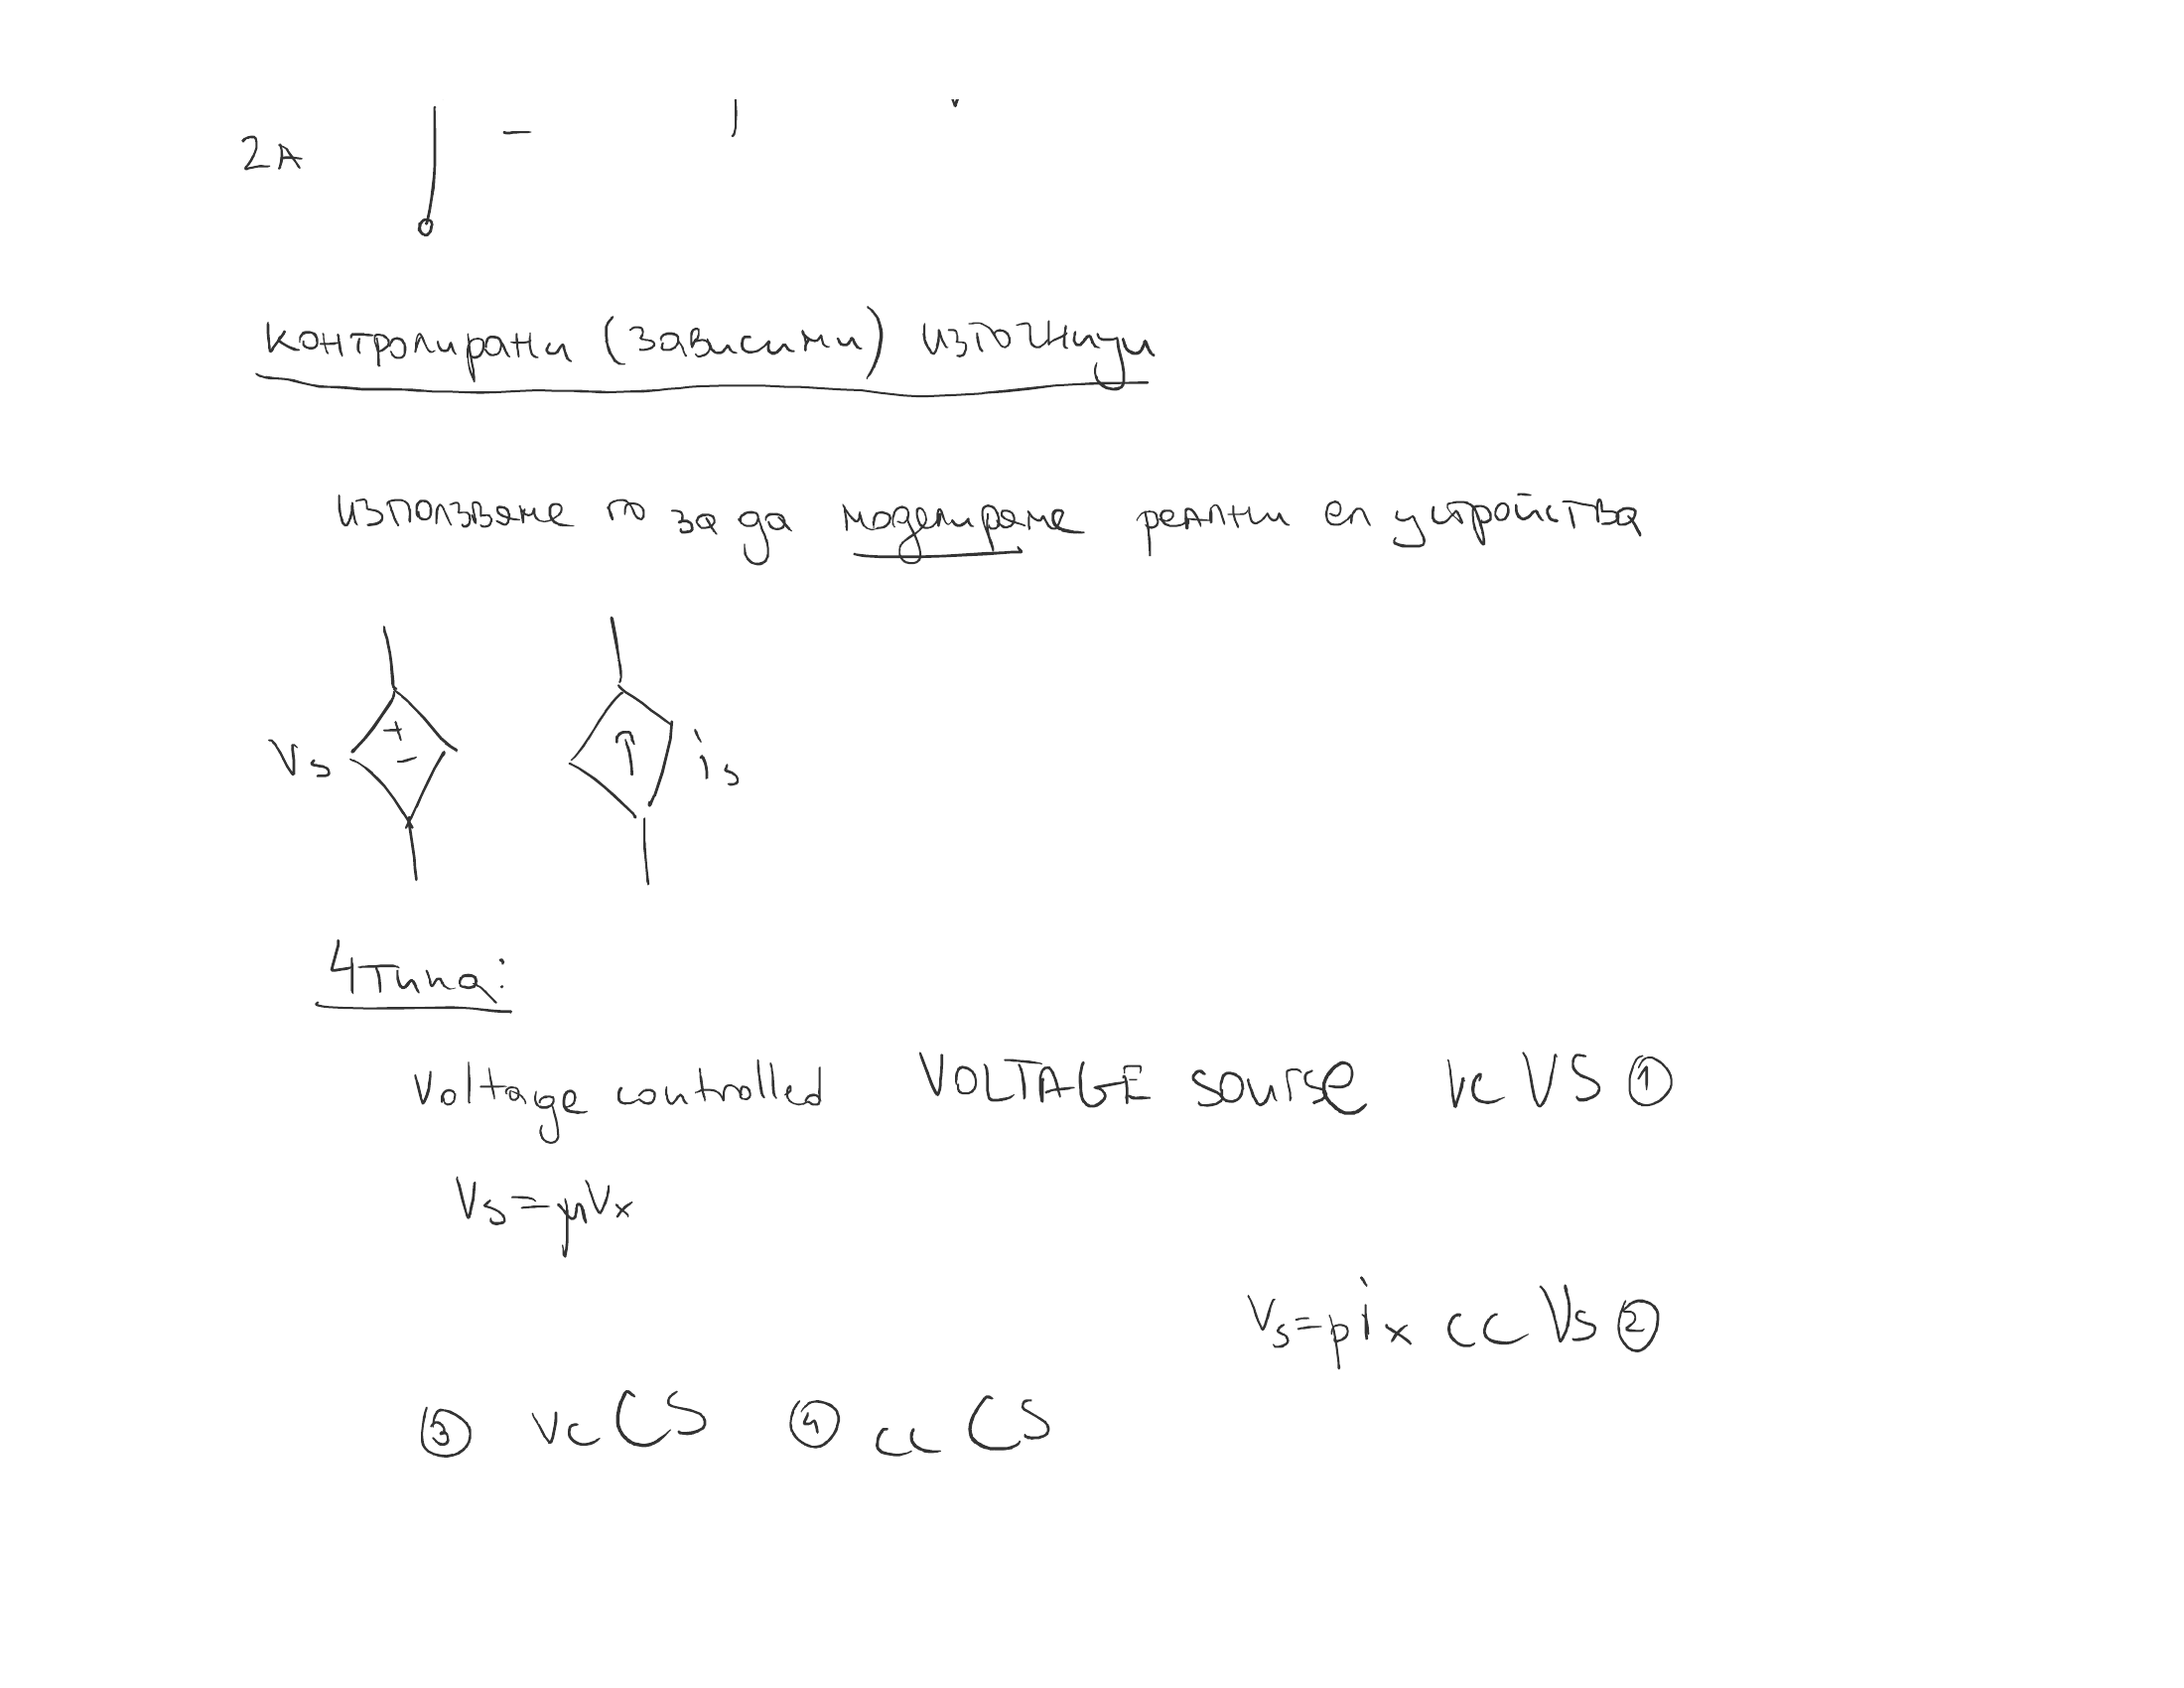 2A
контролирани (зависими) източници
използваме го за да моделираме реални ел устройства
+
-
Vs
is
4 типа:
Voltage controlled VOLTAGE sourse vc VS ①
Vs=μVx
Vs=ρix cc Vs ②
③ vc CS ④ cc CS